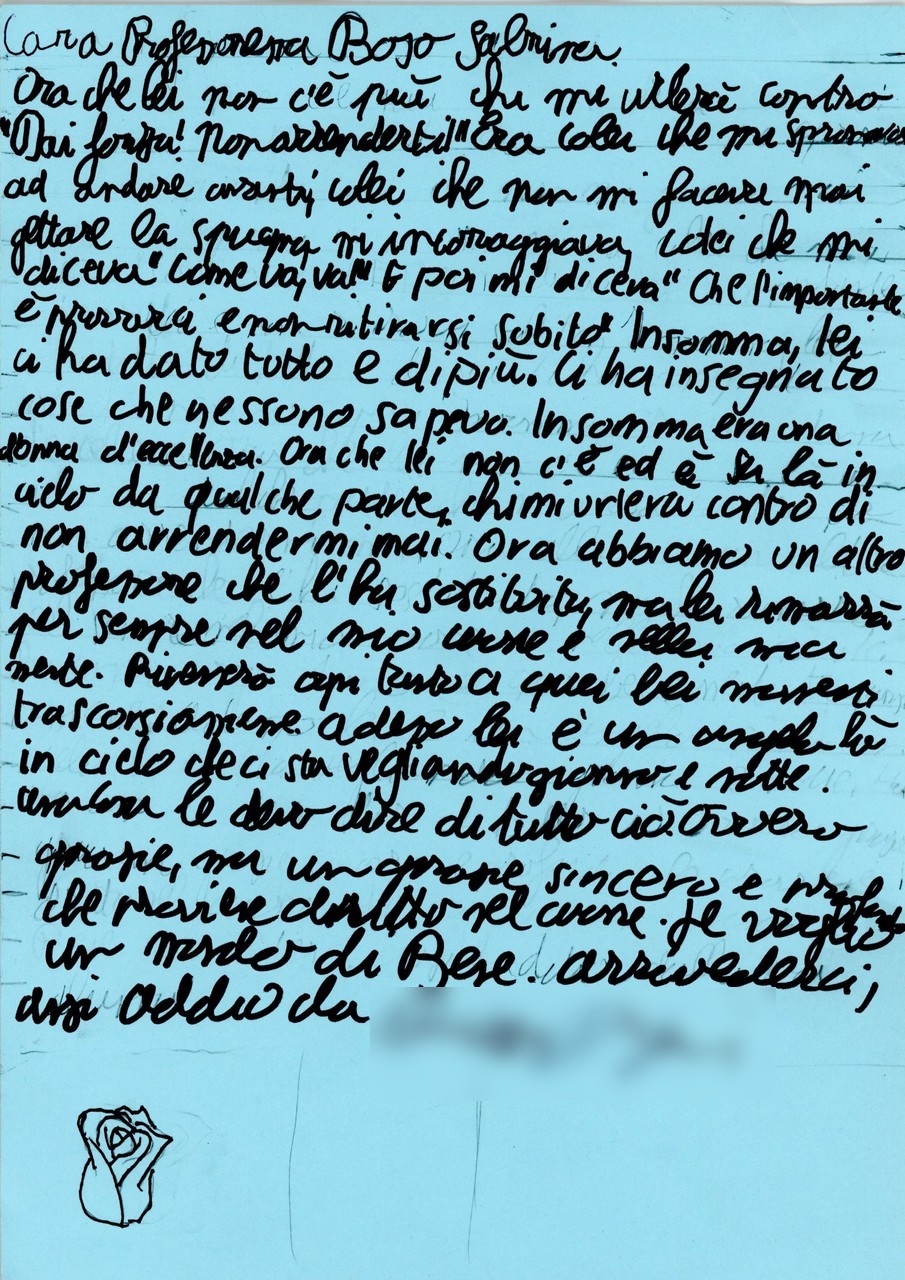 Cara Professoressa Bojo Sabrina.
Ora che lei non c'è più chi mi urlerà contro
"Dai forza! Non arrenderti!" Era colei che mi spronava
ad andare avanti, colei che non mi faceva mai
gettare la spugna, mi incoraggiava, colei che mi
diceva "come va, va!" E poi mi diceva "Che l'importante
è provarci e non ritirarsi subito" Insomma, lei
ci ha dato tutto e di più. Ci ha insegnato
cose che nessuno sapeva. Insomma era una
donna d'eccellenza. Ora che lei non c'è ed è su là in
cielo da qualche parte, chi mi urlerà contro di
non arrendermi mai. Ora abbiamo un altro
professore che l'ha sostituita, ma lei rimarrà
per sempre nel mio cuore e nella mia
mente. Ripenserò ogni tanto a quei bei momenti
trascorsi assieme. adesso lei è un angelo là
in cielo che ci sta vegliando giorno e notte.
una cosa le devo dire di tutto ciò. Ovvero
grazie, ma un grazie sincero e profondo
che proviene diritto nel cuore. Le voglio
un mondo di Bene. arrivederci,
anzi addio da